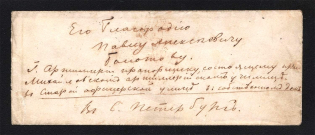 Его Благородію
Павлу Алексѣевичу
Болотову.
Г. Артиллеріи прапорщику, состоящему при
Михайловской артиллерійской училищѣ,
въ Старой офицерской улицѣ въ собственномъ домѣ
Въ С. Петербургѣ.